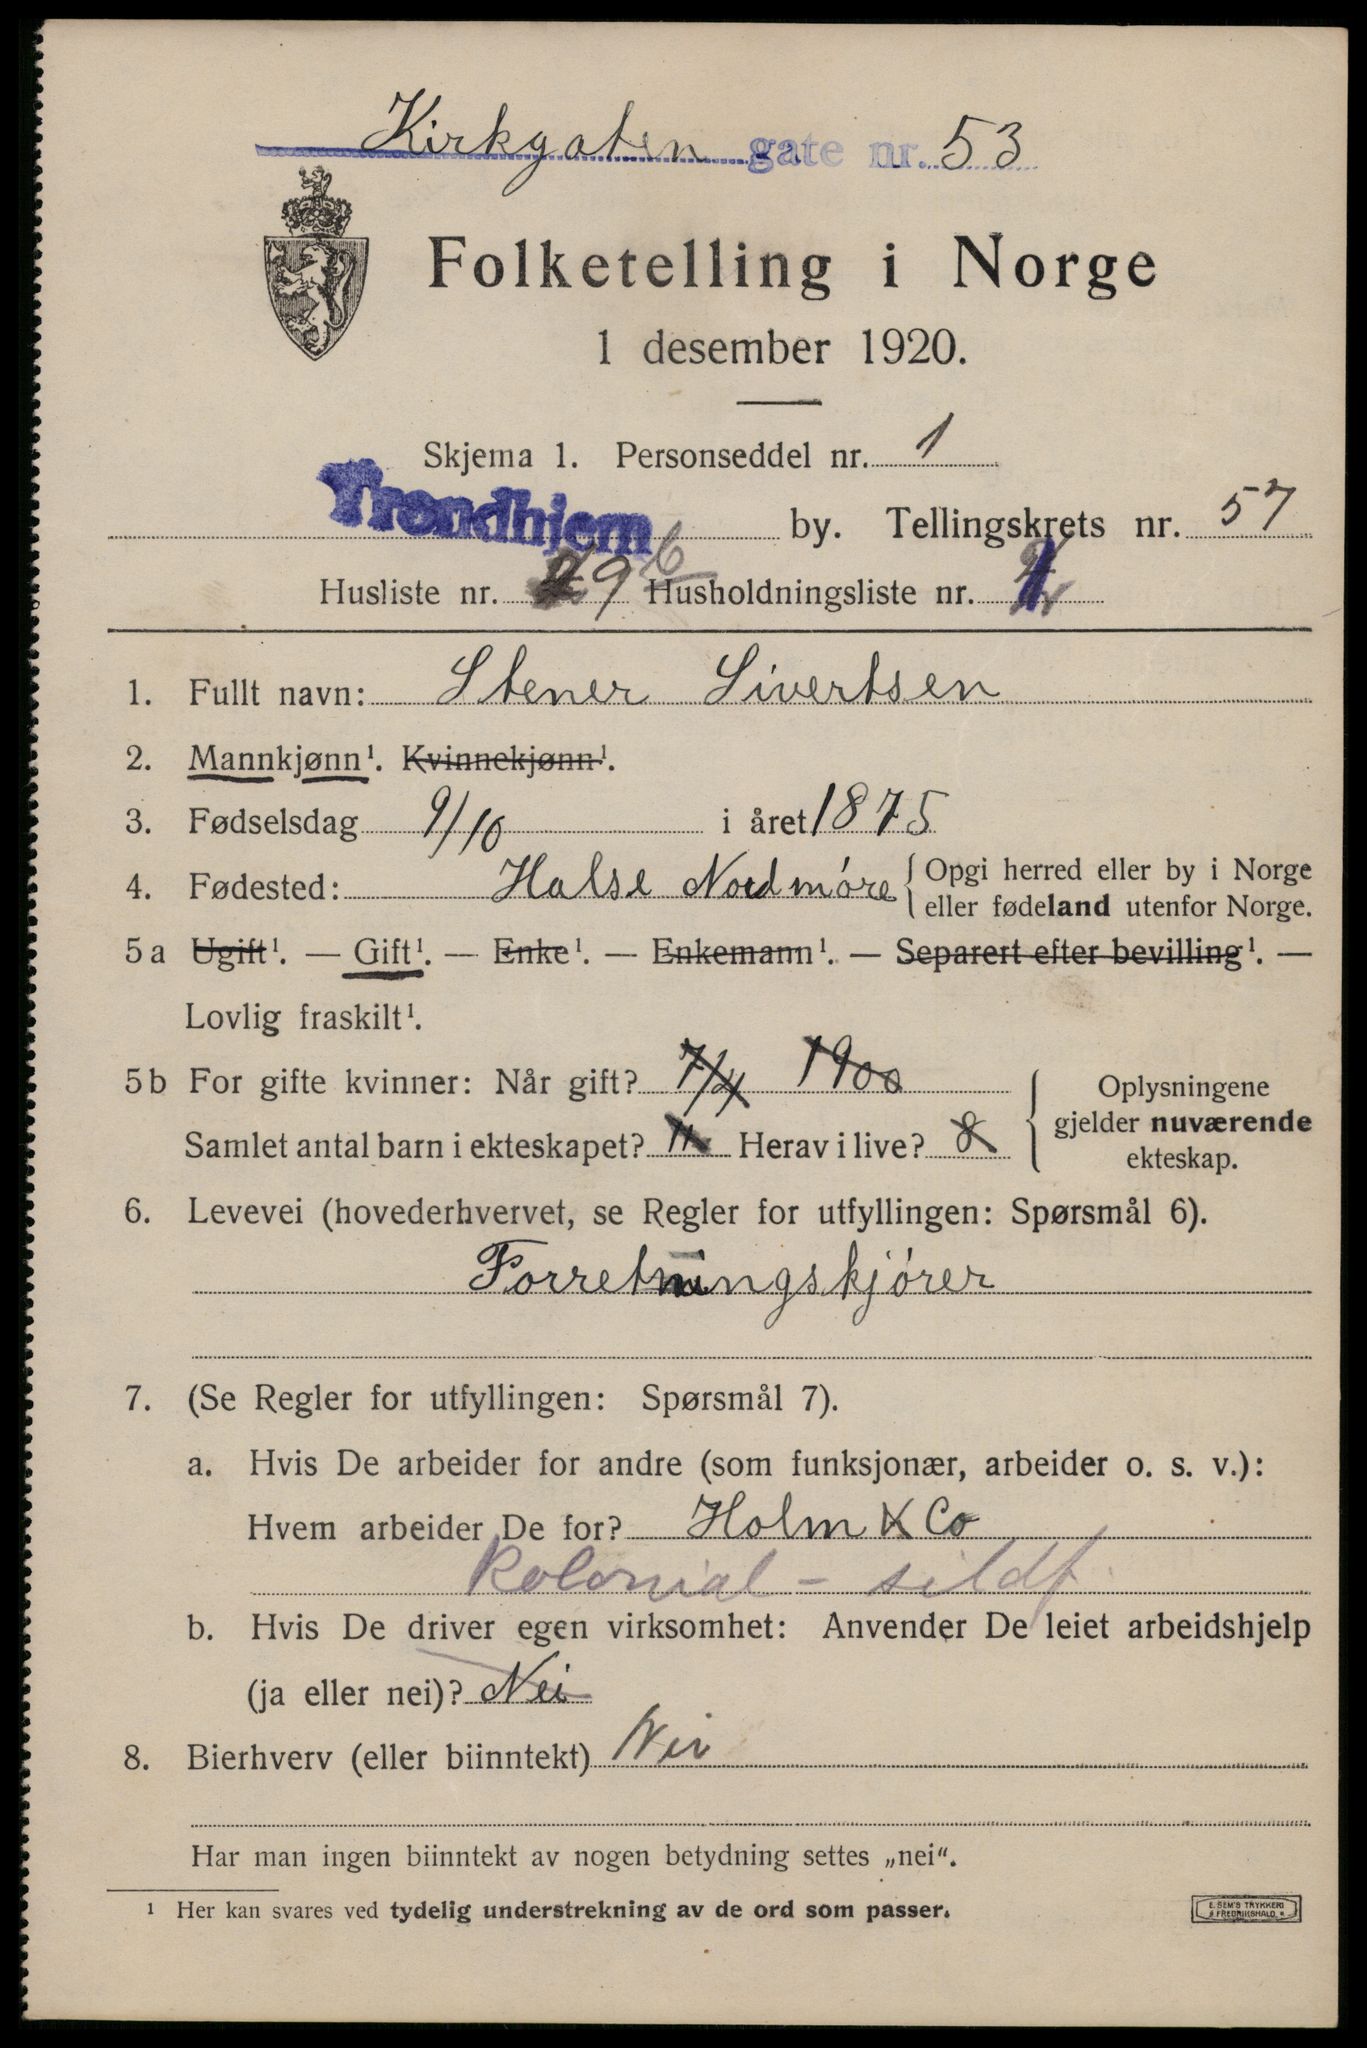 Kirkgaten gate nr. 53
Folketelling i Norge
1 desember 1920.
Skjema 1. Personseddel nr. 1
Trondhjem by. Tellingskrets nr. 57
Husliste nr. 9 6 Husholdningsliste nr.
1. Fullt navn: Stener Sivertsen
2. Mannkjønn¹. Kvinnekjønn¹.
3. Fødselsdag 9/10 i året 1875
4. Fødested: Halse Nordmøre { Opgi herred eller by i Norge
eller fødeland utenfor Norge.
5a Ugift¹. — Gift¹. — Enke¹. — Enkemann¹. — Separert efter bevilling¹. —
Lovlig fraskilt¹.
5b For gifte kvinner: Når gift? 7/4 1900
Samlet antal barn i ekteskapet? 11 Herav i live? 8
{ Oplysningene
gjelder nuværende
ekteskap.
6. Levevei (hovederhvervet, se Regler for utfyllingen: Spørsmål 6).
Forretningskjører
7. (Se Regler for utfyllingen: Spørsmål 7).
a. Hvis De arbeider for andre (som funksjonær, arbeider o. s. v.):
Hvem arbeider De for? Holm & Co
kolonial - sildf.
b. Hvis De driver egen virksomhet: Anvender De leiet arbeidshjelp
(ja eller nei)? Nei
8. Bierhverv (eller biinntekt) Nei
Har man ingen biinntekt av nogen betydning settes „nei“.
¹ Her kan svares ved tydelig understrekning av de ord som passer.
E. SEM'S TRYKKERI
FREDRIKSHALD